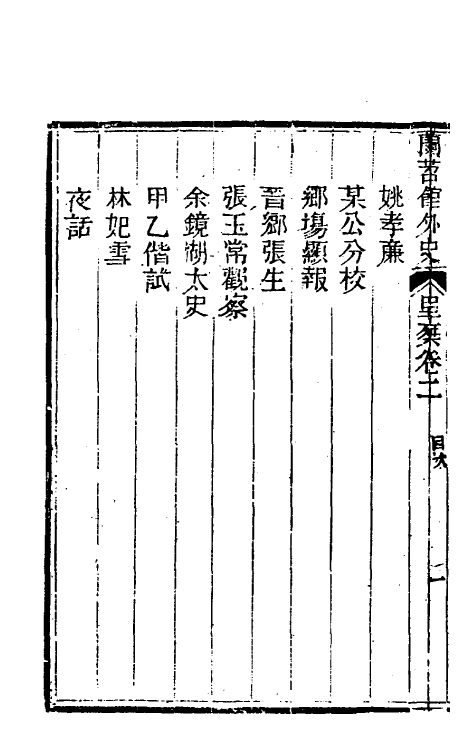 蘭苕館外史
里椉卷二
目次
二
姚孝廉
某公分校
鄉場顯報
晉鄉張生
張玉常觀察
余鏡湖太史
甲乙偕試
林妃雪
夜話